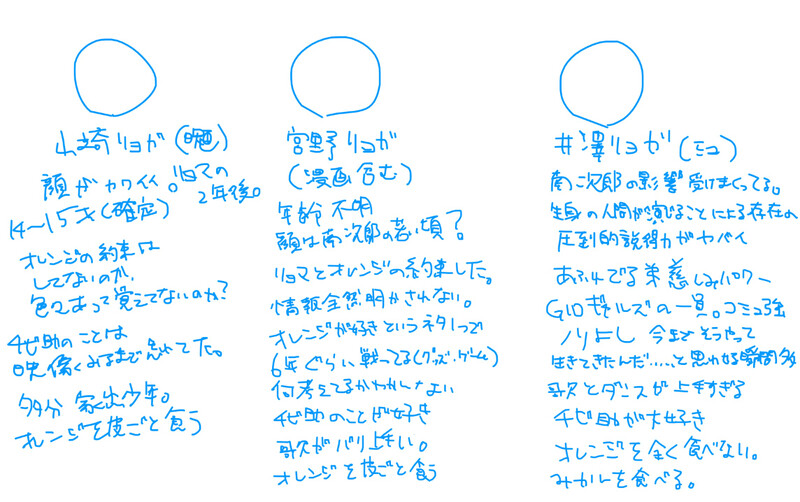 山崎リョガ(映画)
顔がカワイイ。リョマの
2年後。
14〜15才(確定)
オレンジの約束は
してないのか、
色々あって覚えてないのか?
チビ助のことは
映像みるまで忘れてた。
多分 家出少年。
オレンジを皮ごと食う
宮野リョガ
(漫画含む)
年齢 不明
顔は南次郎の若い頃?
リョマとオレンジの約束した。
情報全然明かされない。
オレンジが好きというネタ1つで
6年ぐらい戦ってる(グッズ・ゲーム)
何考えてるかわかんない
チビ助のことが好き
歌がバリ上手い。
オレンジを皮ごと食う
井澤リョガ(ミュ)
南次郎の影響受けまくってる。
生身の人間が演じることによる存在の
圧倒的説得力がヤバイ
あふれでる弟慈しみパワー
G10ギャルズの一員。コミュ強
ノリよし 今までそうやって
生きてきたんだ……と思わせる瞬間多
歌とダンスが上手すぎる
チビ助が大好き
オレンジを全く食べない。
みかんを食べる。